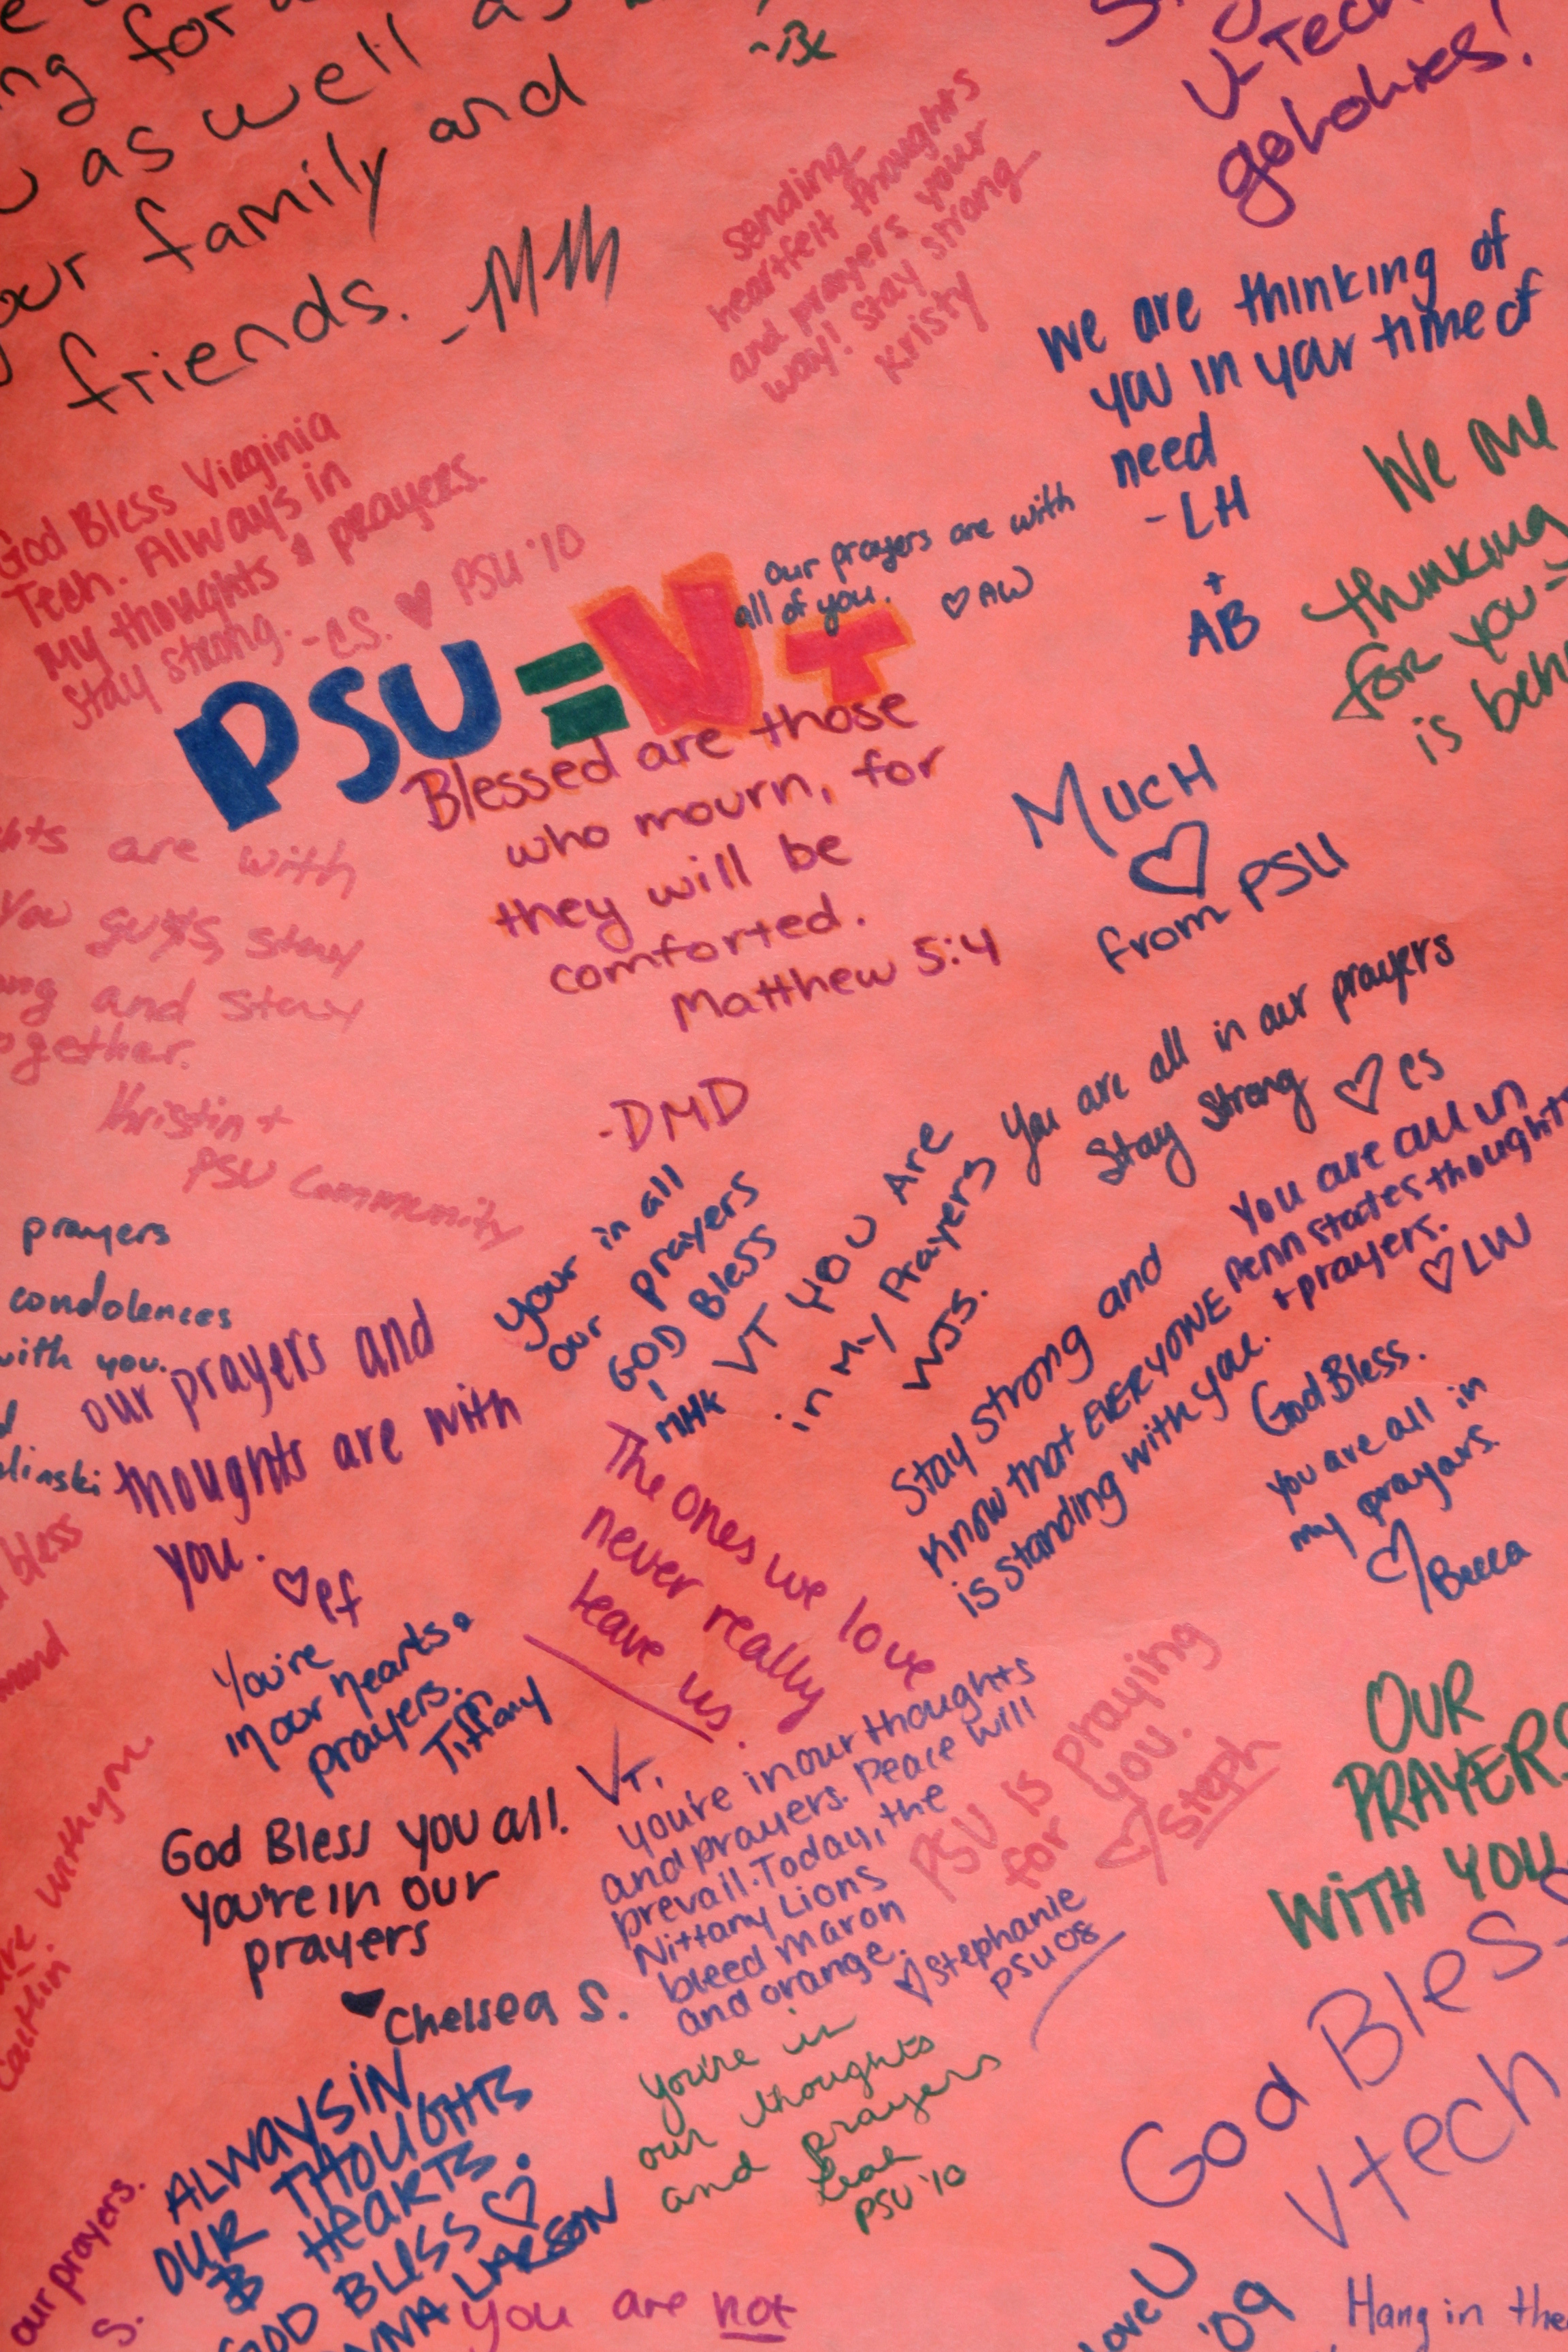 ng for
as well as
our family and
friends. -MM
sending
heartfelt thoughts
and prayers your
way! Stay strong
Kristy
V-Tech
gohokies!
We are thinking of
you in your time of
need
-LH
+
AB
We are
thinking
for you-
is beh
God Bless Virginia
Tech. Always in
My thoughts & prayers.
Stay strong. -CS. ♡ PSU '10
our prayers are with
all of you. ♡ AW
PSU=VT
Blessed are those
who mourn, for
they will be
comforted.
Matthew 5:4
-DMD
Much
♡
from PSU
hts are with
You guys, stay
ong and stay
ogether.
Kristin +
PSU Community
You are all in our prayers
Stay Strong ♡ CS
prayers
condolences
with you.
linski
your in all
our prayers
GOD Bless
-
MHK
VT YOU Are
in My Prayers
WJS.
You are all in
Penn States thoughts
+ prayers.
♡LW
Stay strong and
Know that EVERYONE
is standing with you.
God Bless.
you are all in
my prayers.
♡ Becca
our prayers and
thoughts are with
you.
♡ Pf
The ones we love
never really
leave us.
You're
in our hearts &
prayers.
Tiffany
bless
with you.
Caitlin
VT,
you're in our thoughts
and prayers. Peace will
prevail. Today, the
Nittany Lions
bleed maron
and orange.
♡ Stephanie
PSU 08
PSU is praying
for you.
♡ Steph
OUR
PRAYERS
WITH YOU
God Bless you all.
You're in our
prayers
♥ Chelsea S.
You're in
our thoughts
and prayers
Leah
PSU '10
God Bless
Vtech
ALWAYS IN
OUR THOUGHTS
& HEARTS.
GOD BLESS ♡
LARSON
our prayers.
S.
You are not
love U
'09
Hang in the